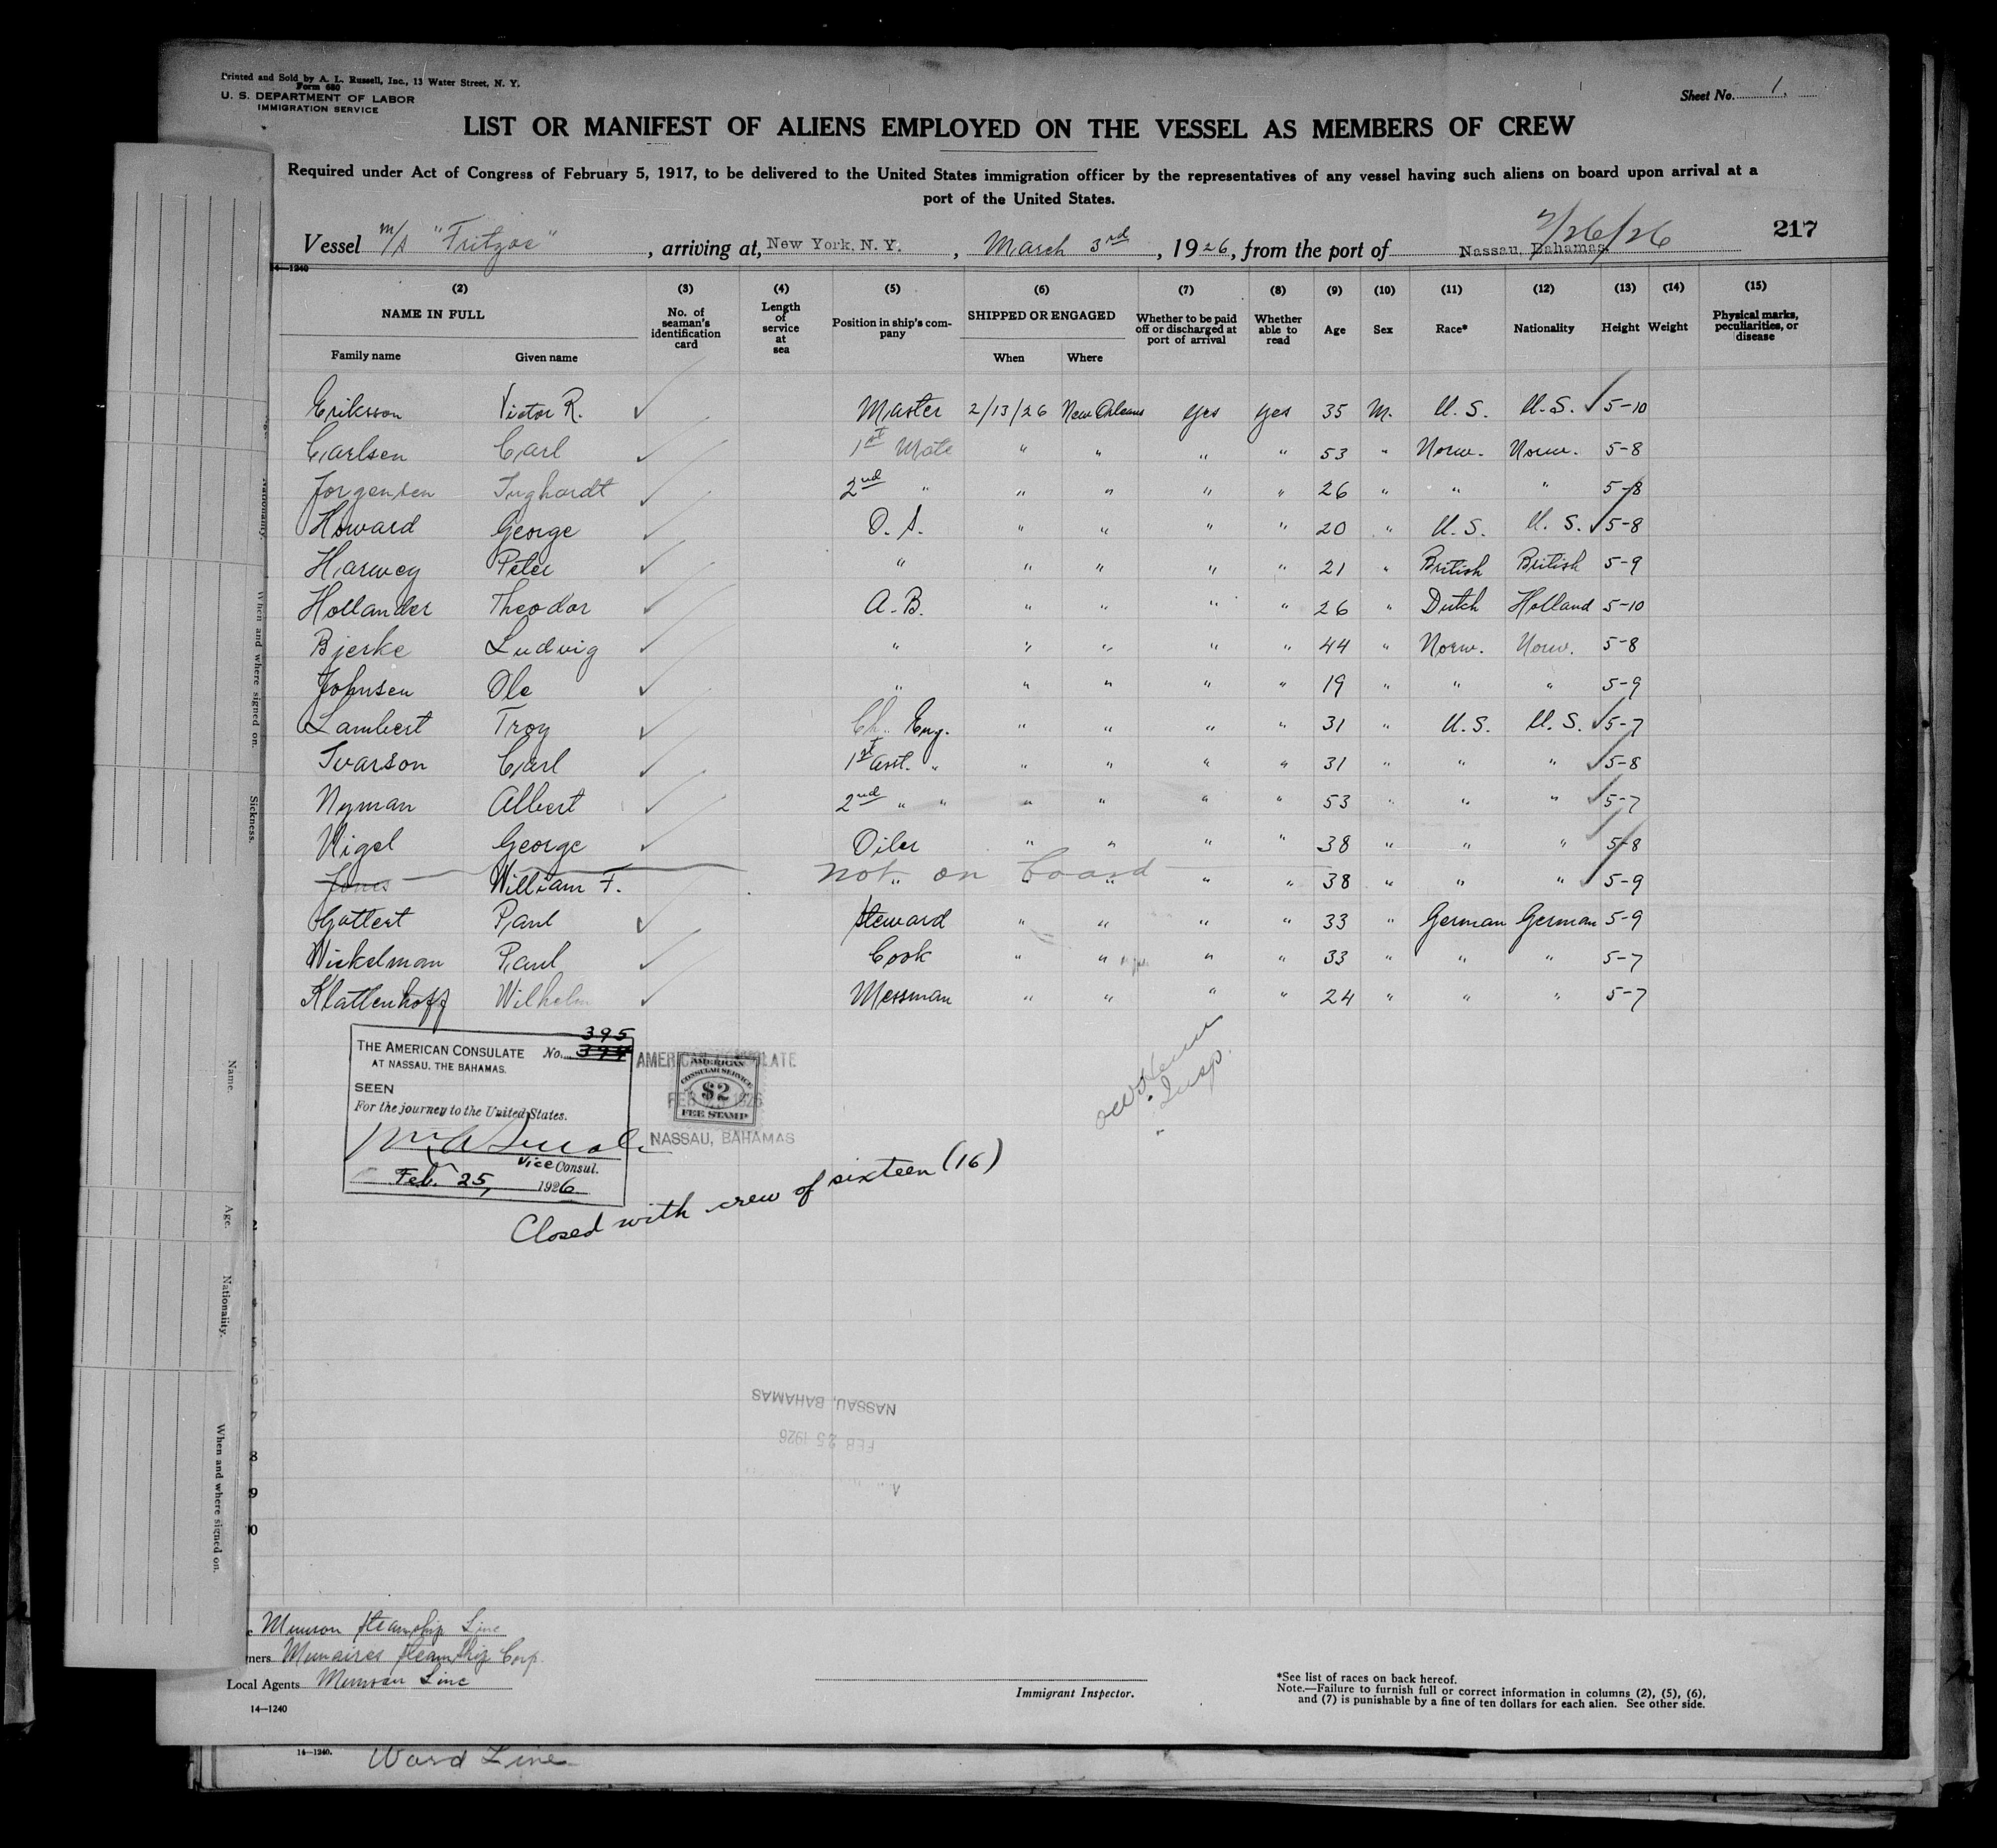 Printed and Sold by A. L. Russell, Inc., 13 Water Street, N. Y.
Form 680
U. S. DEPARTMENT OF LABOR
IMMIGRATION SERVICE
Sheet No. 1.
LIST OR MANIFEST OF ALIENS EMPLOYED ON THE VESSEL AS MEMBERS OF CREW
Required under Act of Congress of February 5, 1917, to be delivered to the United States immigration officer by the representatives of any vessel having such aliens on board upon arrival at a
port of the United States.
Vessel m/s "Fritzoe", arriving at, New York, N. Y., March 3rd, 1926, from the port of Nassau, Bahamas. 2/26/26 217
14—1240
(2) (3) (4) (5) (6) (7) (8) (9) (10) (11) (12) (13) (14) (15)
NAME IN FULL No. of seaman's identification card Length of service at sea Position in ship's company SHIPPED OR ENGAGED Whether to be paid off or discharged at port of arrival Whether able to read Age Sex Race* Nationality Height Weight Physical marks, peculiarities, or disease
Family name Given name When Where
Eriksson Victor R. ✓ Master 2/13/26 New Orleans yes yes 35 M. U.S. U.S. ✓ 5-10
Carlsen Carl ✓ 1st Mate " " " " 53 " Norw. Norw. 5-8
Jorgensen Inghardt ✓ 2nd " " " " " 26 " " " 5-8
Howard George ✓ O.S. " " " " 20 " U.S. U.S. ✓ 5-8
Harwey Peter ✓ " " " " " 21 " British British 5-9
Hollander Theodor ✓ A.B. " " " " 26 " Dutch Holland 5-10
Bjerke Ludvig ✓ " " " " " 44 " Norw. Norw. 5-8
Johnsen Ole ✓ " " " " " 19 " " " 5-9
Lambert Troy ✓ Ch. Eng. " " " " 31 " U.S. U.S. ✓ 5-7
Ivarson Carl ✓ 1st asst. " " " " " 31 " " " ✓ 5-8
Nyman Albert ✓ 2nd " " " " " " 53 " " " ✓ 5-7
Nigel George ✓ Oiler " " " " 38 " " " ✓ 5-8
Jones William F. " " " " " 38 " " " ✓ 5-9
not on board
Gottert Paul ✓ Steward " " " " 33 " German German 5-9
Wickelman Paul ✓ Cook " " " " 33 " " " 5-7
Klattenhoff Wilhelm ✓ Messman " " " " 24 " " " 5-7
395
THE AMERICAN CONSULATE No. 394
AT NASSAU, THE BAHAMAS.
SEEN
For the journey to the United States.
Vice Consul.
Feb. 25, 1926
AMERICAN CONSULATE
AMERICAN
CONSULAR SERVICE
$2
FEE STAMP
NASSAU, BAHAMAS
Insp.
Closed with crew of sixteen (16)
NASSAU, BAHAMAS
FEB 25 1926
8
9
10
Munson Steamship Line
Munaires Steamship Corp.
Local Agents Munson Line
14—1240
Immigrant Inspector.
*See list of races on back hereof.
Note.—Failure to furnish full or correct information in columns (2), (5), (6),
and (7) is punishable by a fine of ten dollars for each alien. See other side.
14—1240.
Ward Line
Nationality.
When and where signed on.
Sickness.
Name.
Age.
Nationality.
When and where signed on.